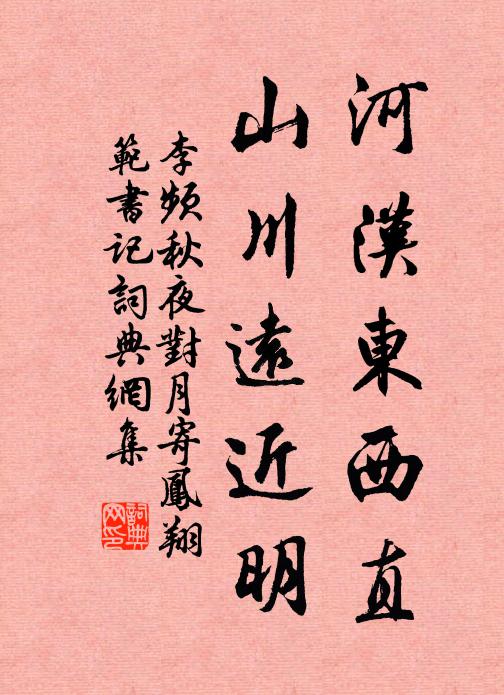 河漢東西直
山川遠近明
李頻秋夜對月寄鳳翔
範書記詞典網集
詞典
网印